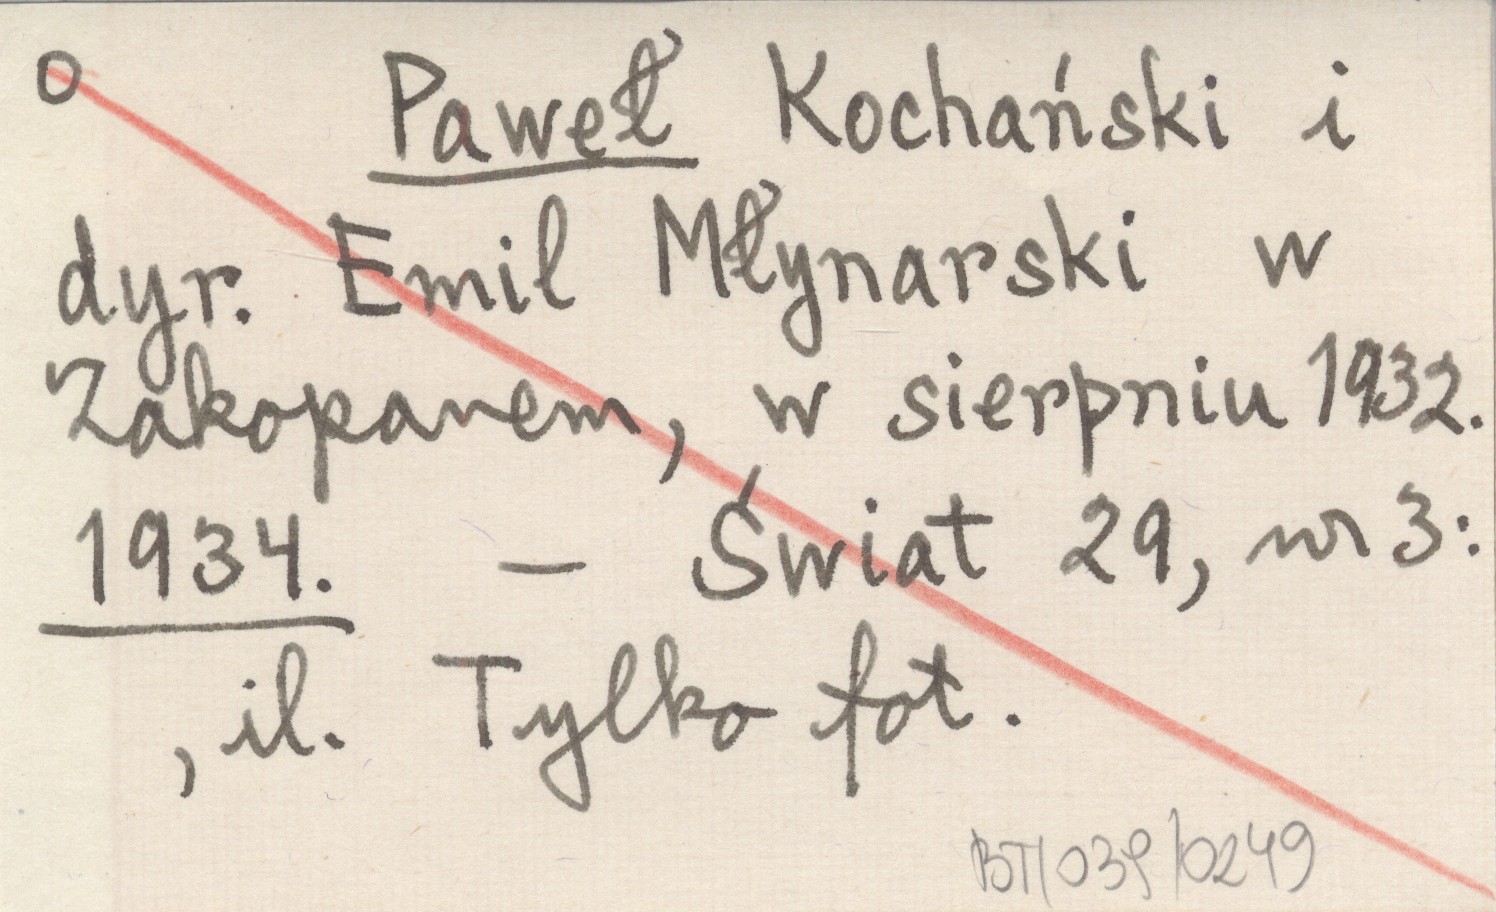 O Paweł Kochański i
dyr. Emil Młynarski w
Zakopanem, w sierpniu 1932.
1934. – Świat 29, nr 3:
, il. Tylko fot.
BT/039/0249